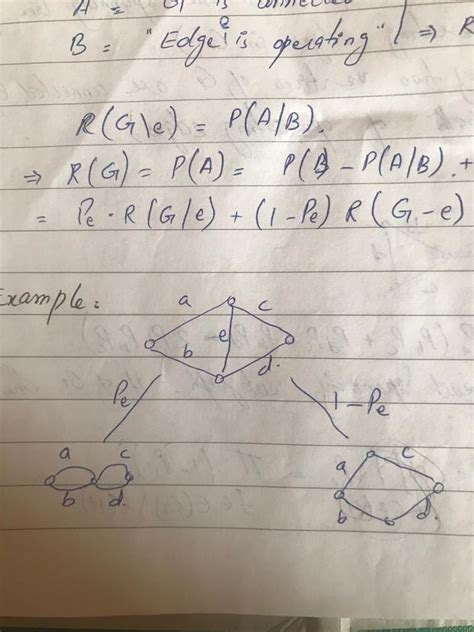 A = "G is connected
B = "Edge e is operating" | ⇒ R
R(G\e) = P(A/B).
⇒ R(G) = P(A) = P(B) - P(A/B). +
= Pe · R(G/e) + (1-Pe) R(G-e)
Example:
a c
e
b d.
Pe 1-Pe
a c a c
b d. b d.